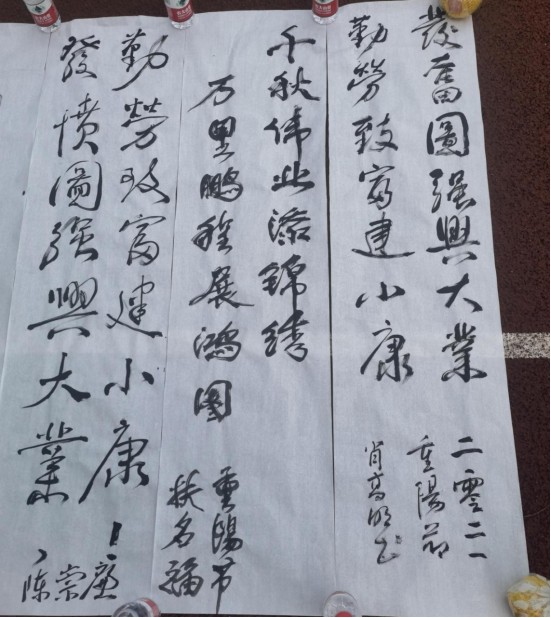 發奮圖强興大業
勤勞致富建小康
二零二一
重陽節
肖高明书
千秋伟业添锦绣
万里鹏程展鸿图
重陽节
名福
勤勞致富建小康
發憤圖强興大業
陈崇